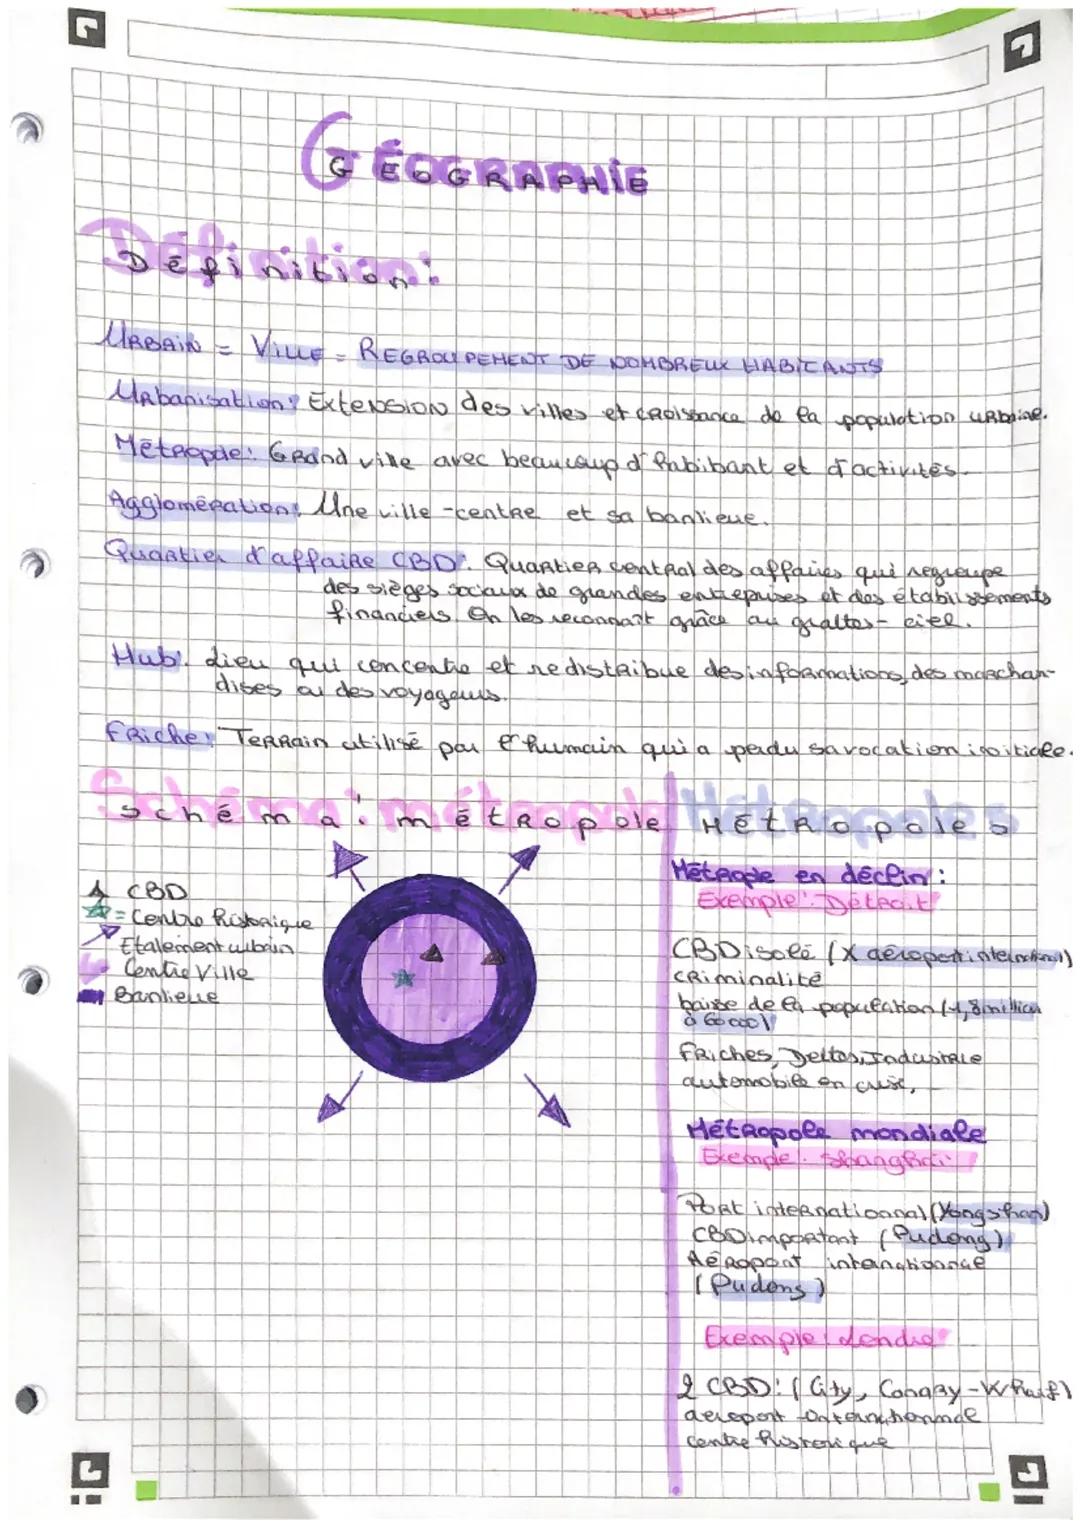 GÉOGRAPHIE
Définition:
URBAIN = VILLE = REGROUPEMENT DE NOMBREUX HABITANTS
Urbanisation: Extension des villes et croissance de la population urbaine.
Métropole: Grand ville avec beaucoup d'habibant et d'activités.
Agglomération: Une ville-centre et sa banlieue.
Quartier d'affaire CBD: Quartier central des affaires qui regroupe
des sièges sociaux de grandes entreprises et des établissements
financiers. On les reconnaît grâce au grattes-ciel.
Hub: Lieu qui concentre et redistribue des informations, des marchan-
dises ou des voyageurs.
Friche: Terrain utilisé par l'humain qui a perdu sa vocation initiale.
Schéma: métropole
CBD
= Centre historique
Etalement urbain
Centre Ville
Banlieue
Métropoles
Métropole en déclin:
Exemple: Détroit
CBD isolé (X aéroport international)
criminalité
baisse de la population (1,8 million
à 60 000)
Friches, Dettes, Industrie
automobile en crise,
Métropole mondiale
Exemple: Shanghai
Port international (Yangshan)
CBD important (Pudong)
Aéroport internationale
(Pudong)
Exemple: Londre
2 CBD: (City, Canary-Wharf)
aéroport international
centre historique